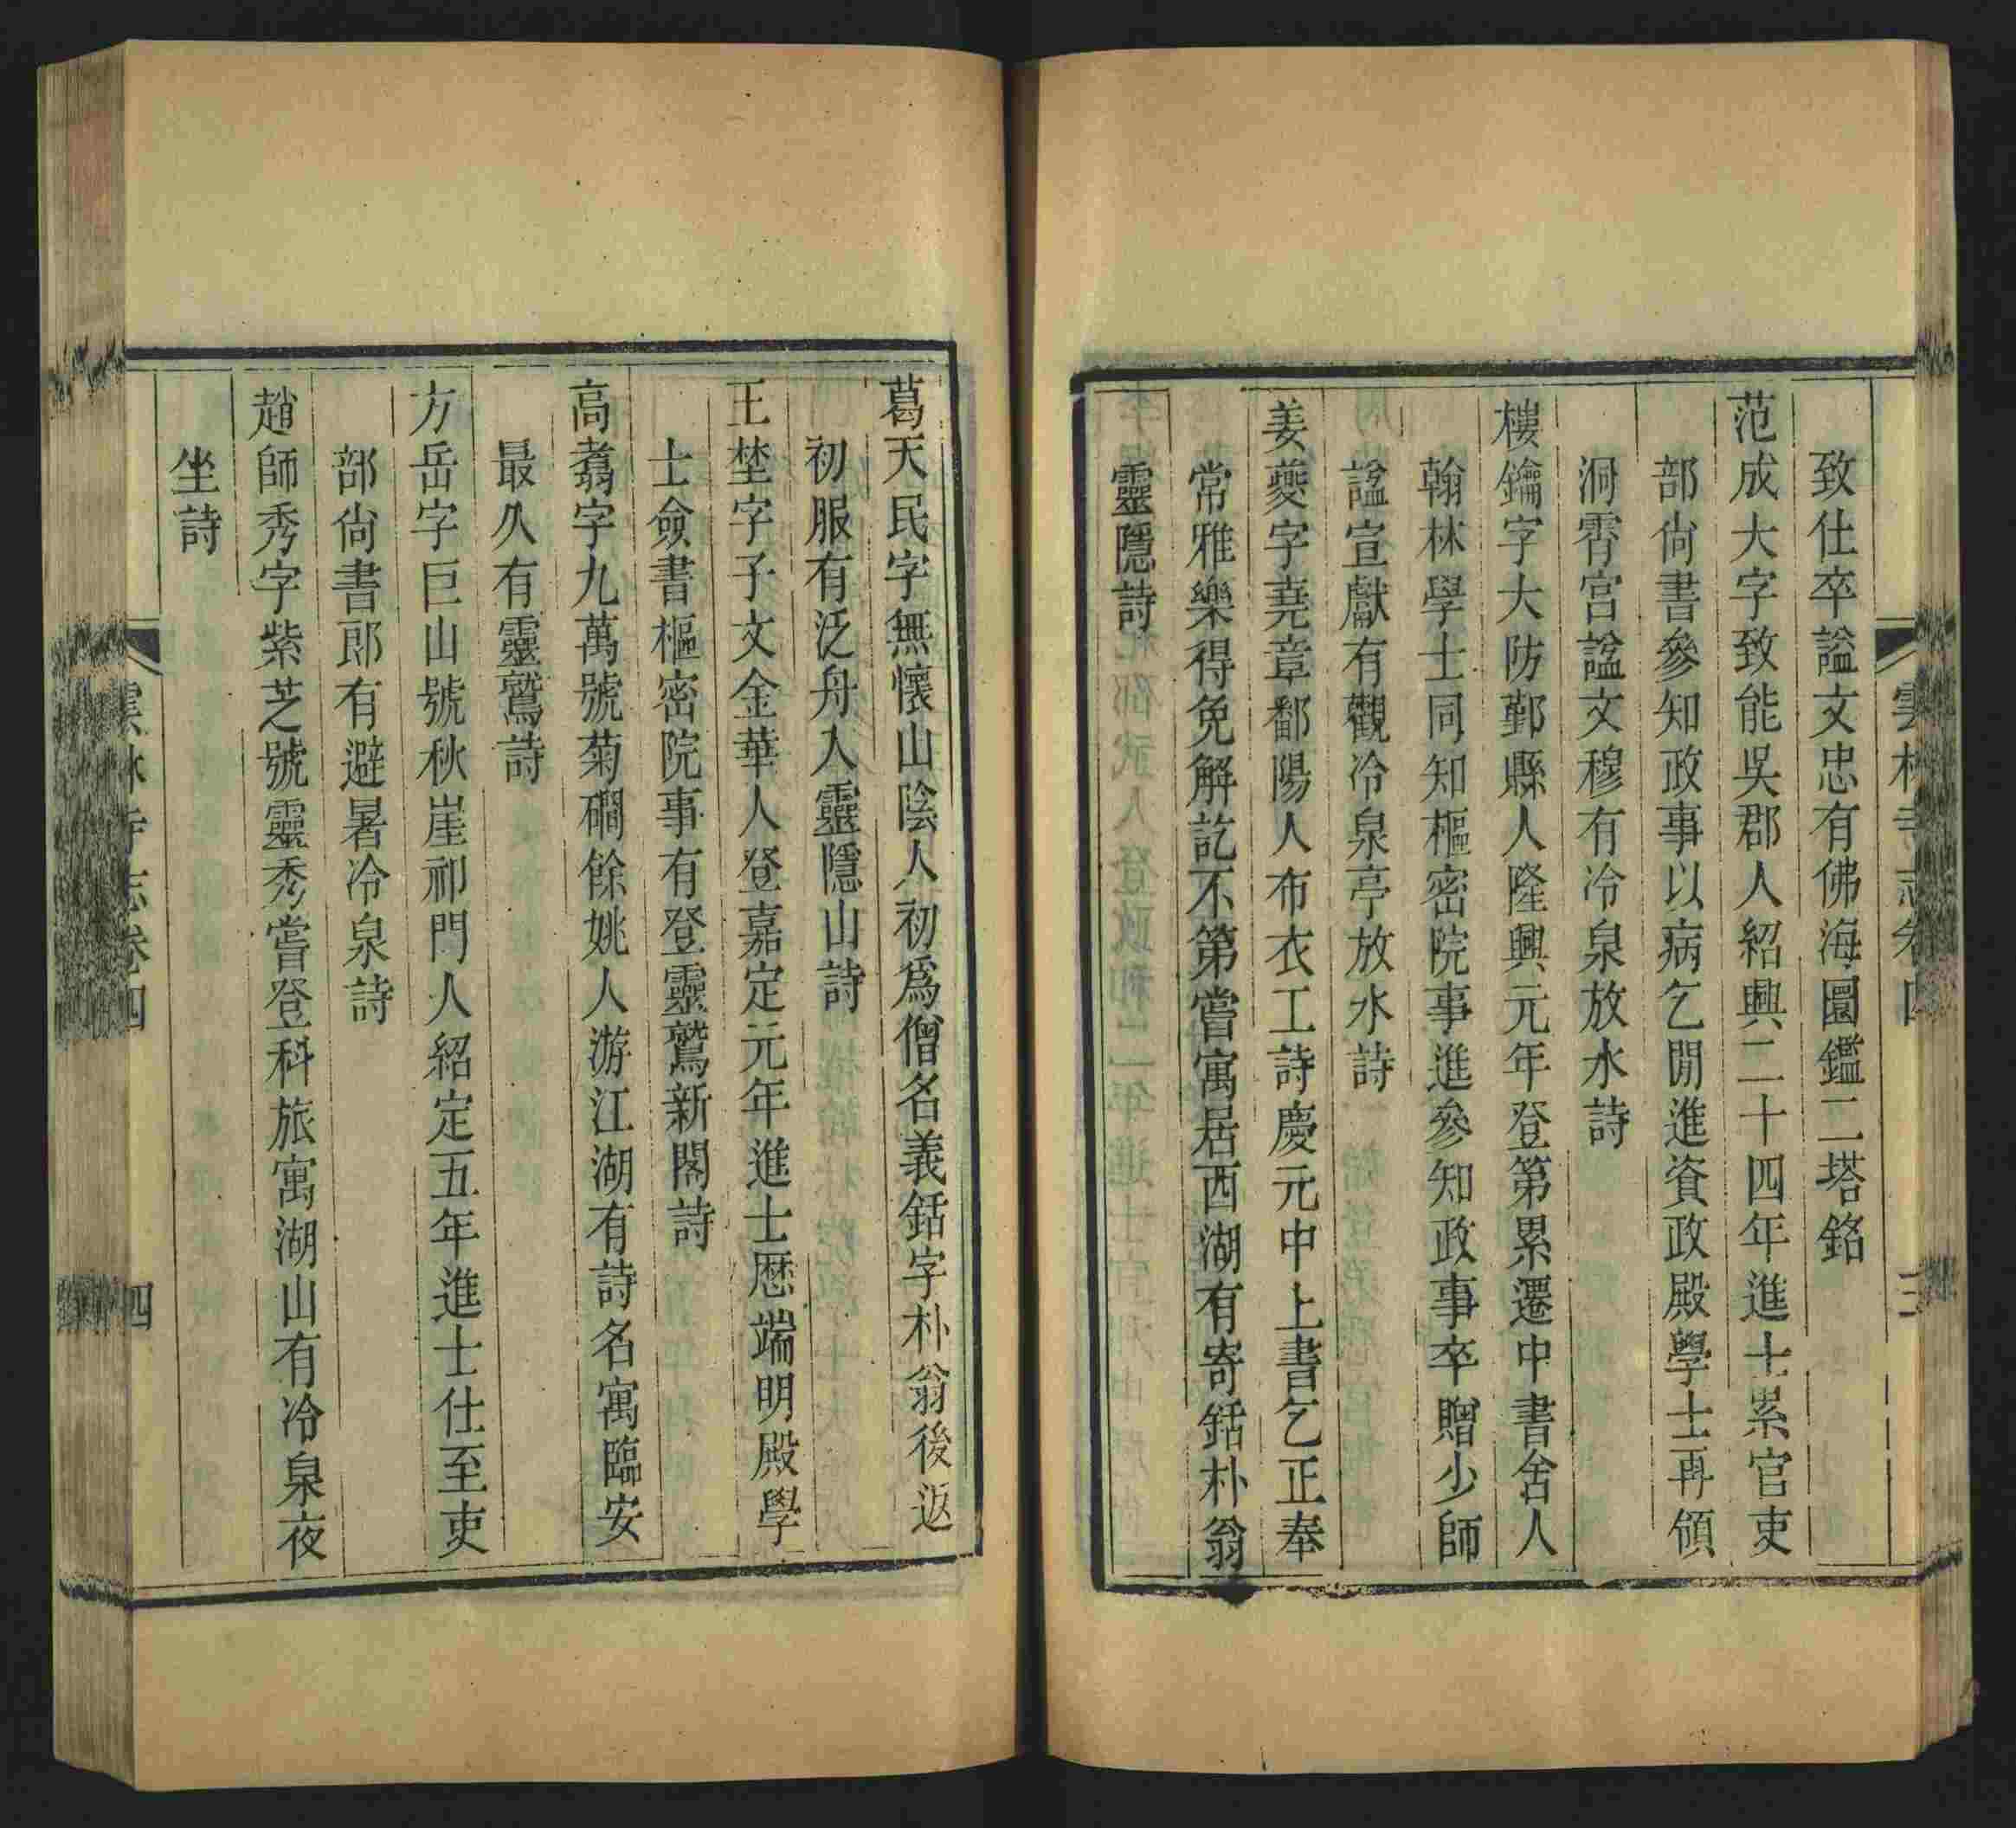 致仕卒謚文忠有佛海圓鑑二塔銘
范成大字致能吳郡人紹興二十四年進士累官吏
部尙書參知政事以病乞閒進資政殿學士再領
洞霄宮諡文穆有冷泉放水詩
樓鑰字大防鄞縣人隆興元年登第累遷中書舍人
翰林學士同知樞密院事進參知政事卒贈少師
諡宣獻有觀冷泉亭放水詩
姜夔字堯章鄱陽人布衣工詩慶元中上書乞正奉
常雅樂得免解訖不第嘗寓居西湖有寄銛朴翁
靈隱詩
雲林寺志卷四
三
葛天民字無懷山陰人初爲僧名義銛字朴翁後返
初服有泛舟入靈隱山詩
王埜字子文金華人登嘉定元年進士歷端明殿學
士僉書樞密院事有登靈鷲新閣詩
高翥字九萬號菊磵餘姚人游江湖有詩名寓臨安
最久有靈鷲詩
方岳字巨山號秋崖祁門人紹定五年進士仕至吏
部尙書郎有避暑冷泉詩
趙師秀字紫芝號靈秀嘗登科旅寓湖山有冷泉夜
坐詩
雲林寺志卷四
四